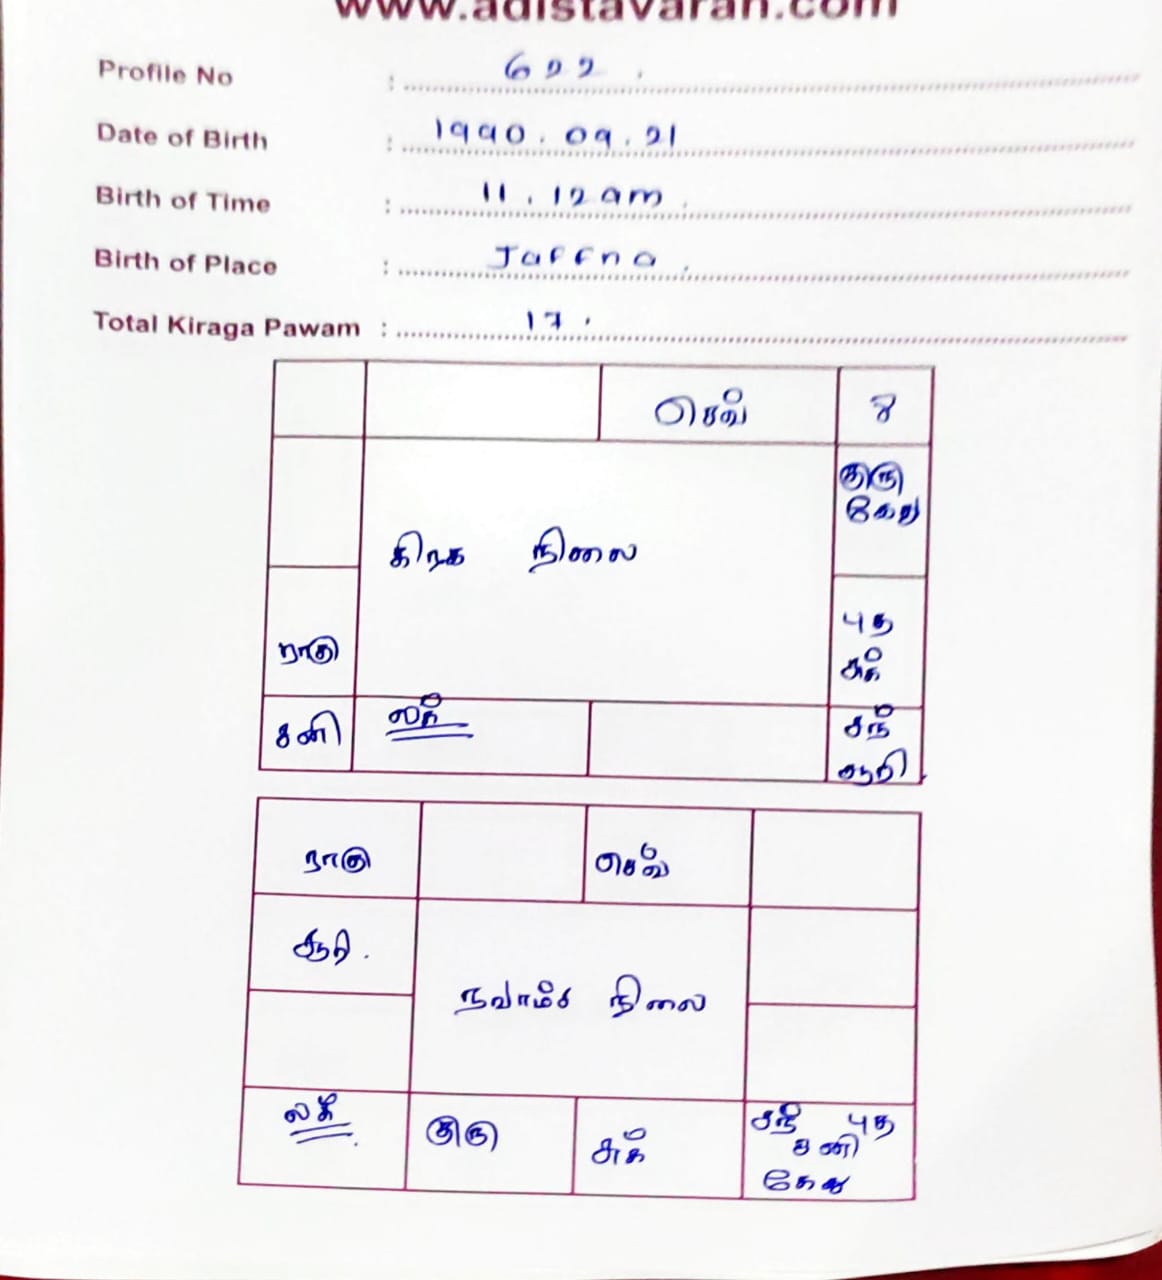 www.adistavaran.com
Profile No : 622.
Date of Birth : 1990.09.21
Birth of Time : 11.12am.
Birth of Place : Jaffna.
Total Kiraga Pawam : 17.
செவ் 8
குரு
கேது
கிரக நிலை
புத
சுக்
ராகு
சனி லக் சந்
சூரி
ராகு செவ்
சூரி.
நவாம்ச நிலை
லக் குரு சுக் சந் புத
சனி
கேது